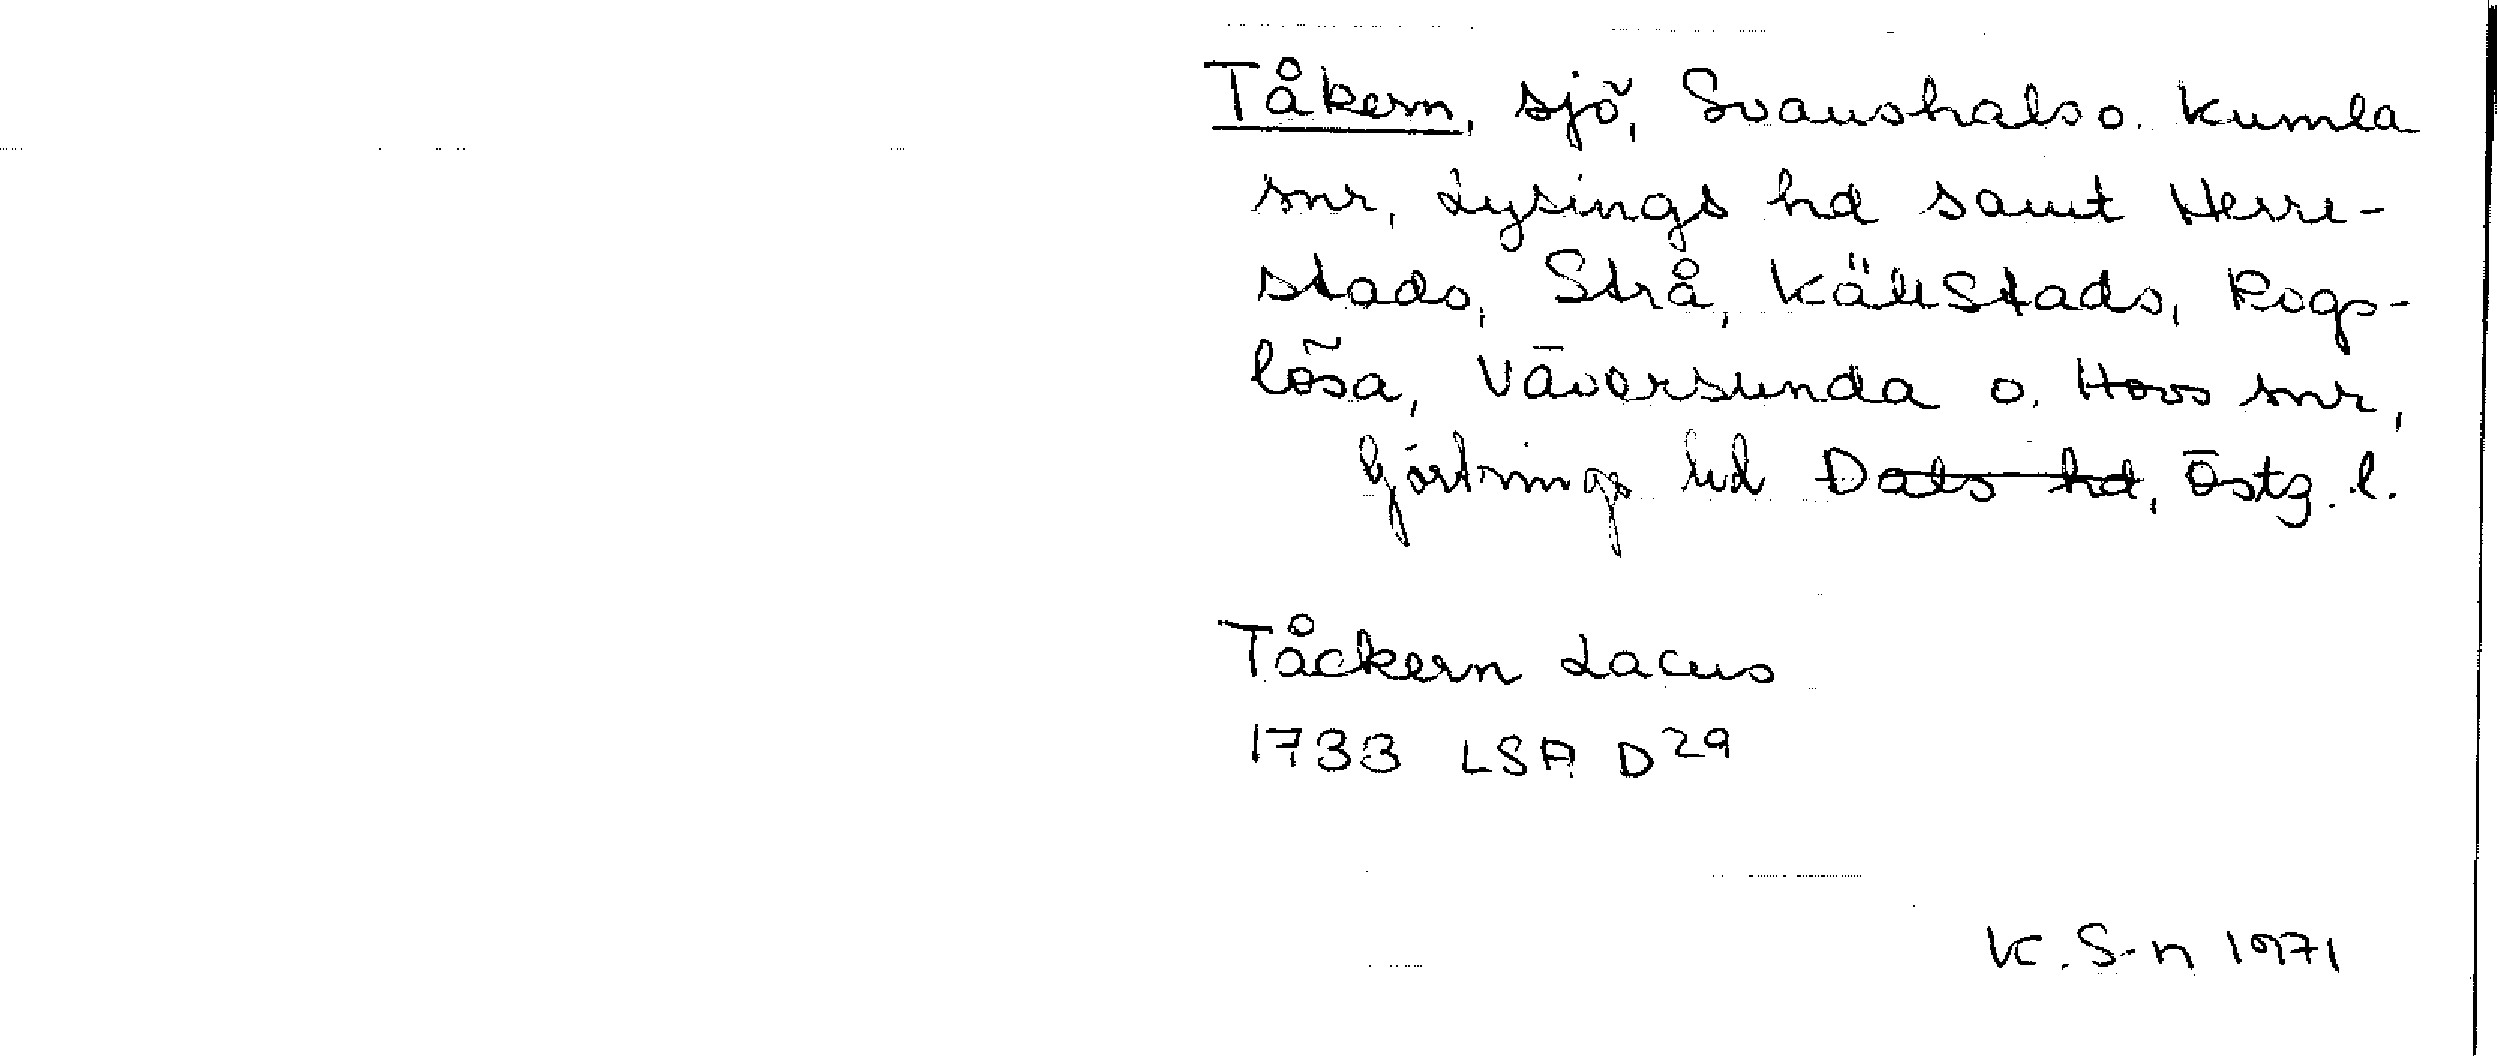 Tåkern, sjö, Svanshals o. Kumla
snr, Lysings hd samt Herre-
stads, Strå, Källstads, Rogs-
lösa, Väversunda o. Hovs snr,
Göstrings hd Dals hd, Östg. l.
Tåckern Lacus
1733 LSA D29
K. S-n 1971